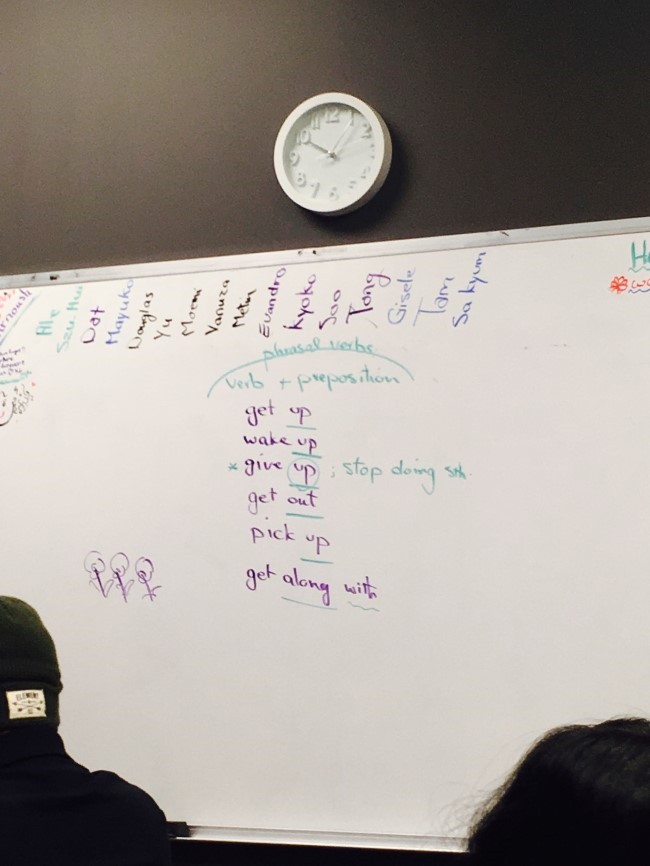 12 1 2 3 4 5 6 7 8 9 10 11
Ale
Szu-Hui
Dot
Mayuko
Douglas
Yu
Moeni
Vanuza
Evandro
Kyoko
Soo
Tong
Gisele
Tam
Sakyum
phrasal verbs
verb + preposition
get up
wake up
* give up ; stop doing sth.
get out
pick up
get along with
ELEMENT